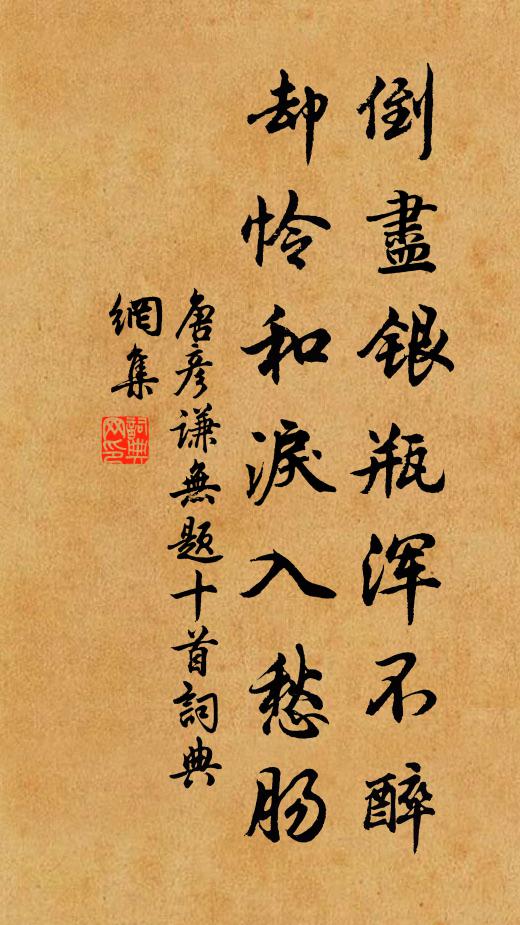 倒盡銀瓶浑不醉
却怜和淚入愁肠
唐彦谦無题十首詞典
網集
詞典
网印